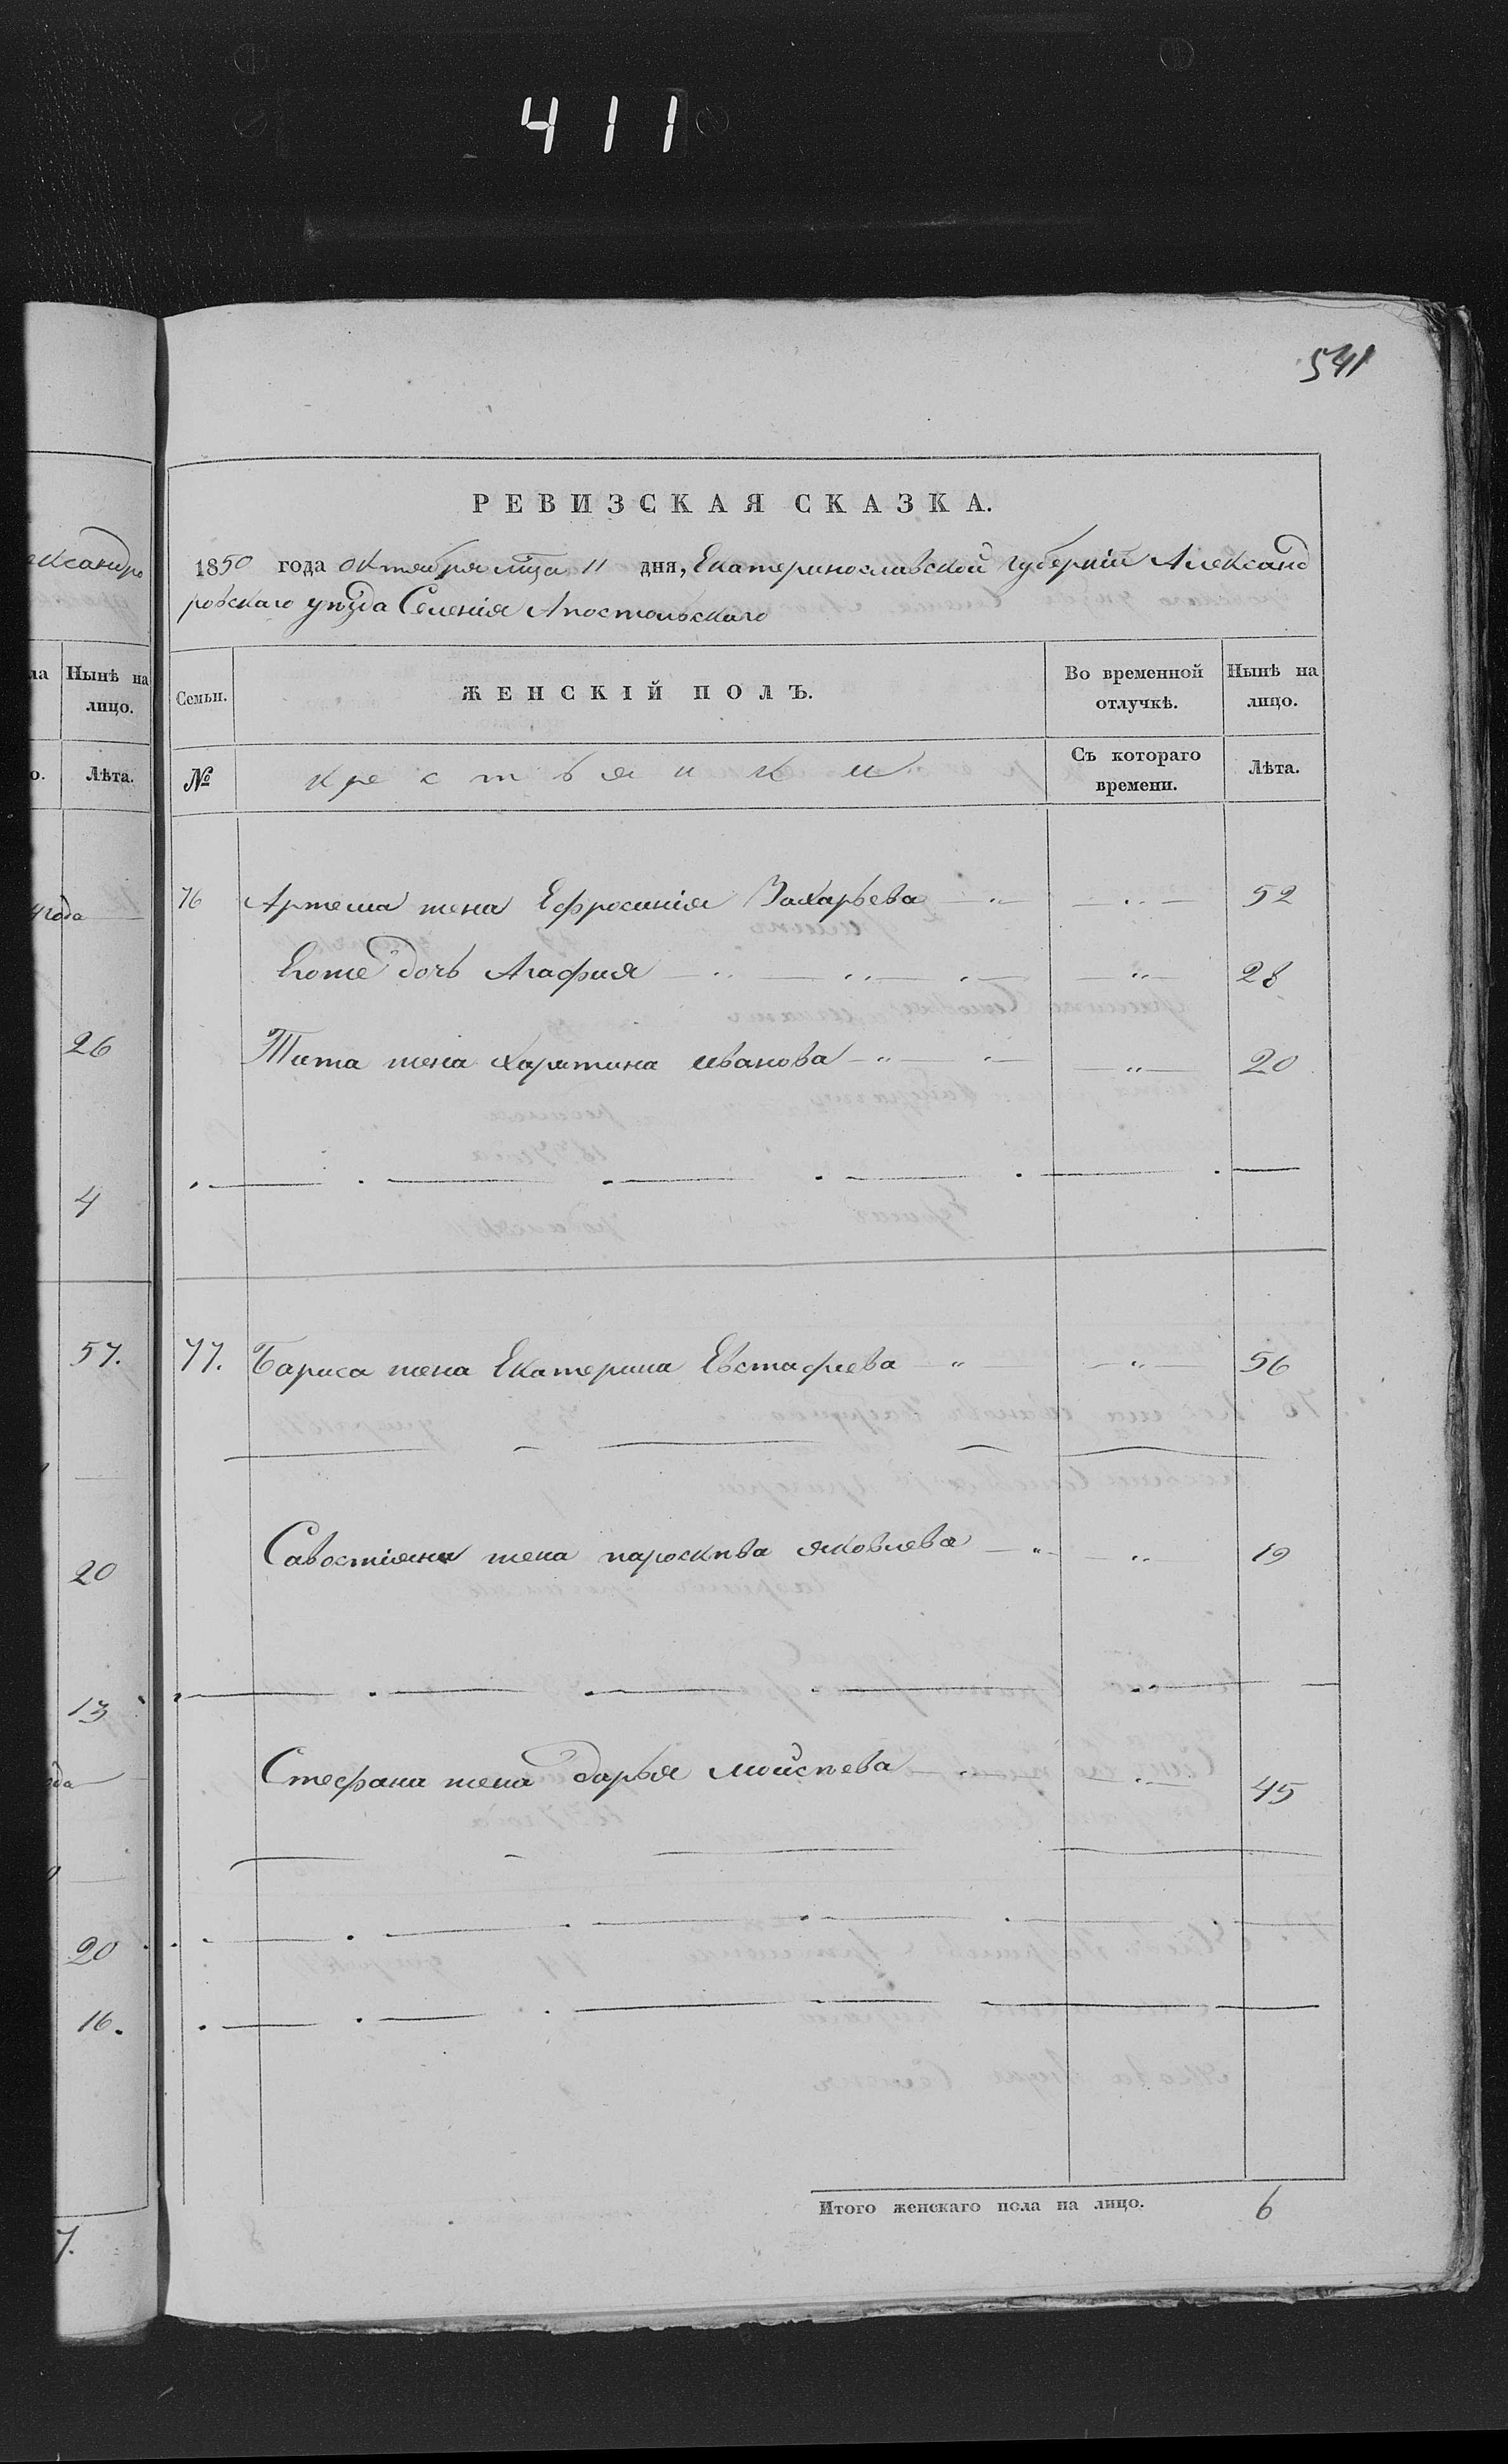 411
541
РЕВИЗСКАЯ СКАЗКА.
1850 года октября мца 11 дня, Екатеринославской губерніи Александ
ровскаго уѣзда Селенія Апостольскаго
Семьи.
ЖЕНСКІЙ ПОЛЪ.
Во временной отлучкѣ.
Нынѣ на лицо.
№
крестьянки
Съ котораго времени.
Лѣта.
76 Артема жена Ефросинія Захарьева 52
Егоже дочь Агафия 28
Тита жена Харитина иванова 20
77. Бариса жена Екатерина Евстафиева 56
Савостіяна жена параскѣва яковлева 19
Стефана жена дарья моисѣева 45
Итого женскаго пола на лицо. 6
ександро
ла Нынѣ на
лицо.
о. Лѣта.
года
26
4
57.
20
13
да
20
16.
7.